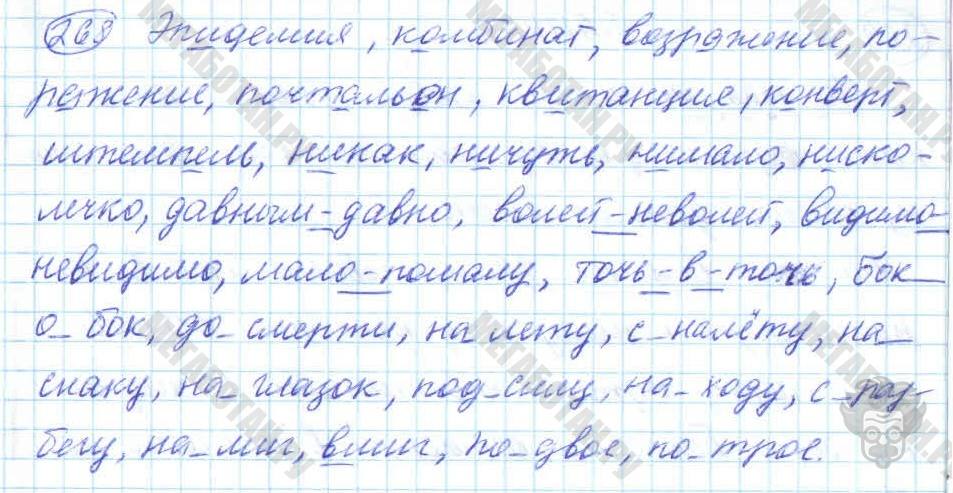 268 Эпидемия, комбинат, возражение, по-
ражение, почтальон, квитанция, конверт,
штемпель, никак, ничуть, нимало, ниско-
лечко, давным-давно, волей-неволей, видимо-
невидимо, мало-помалу, точь-в-точь, бок
о бок, до смерти, на лету, с налёту, на
скаку, на глазок, под силу, на ходу, с раз-
бегу, на миг, вмиг, по двое, по трое.
МЕГАБОТАН.РУ